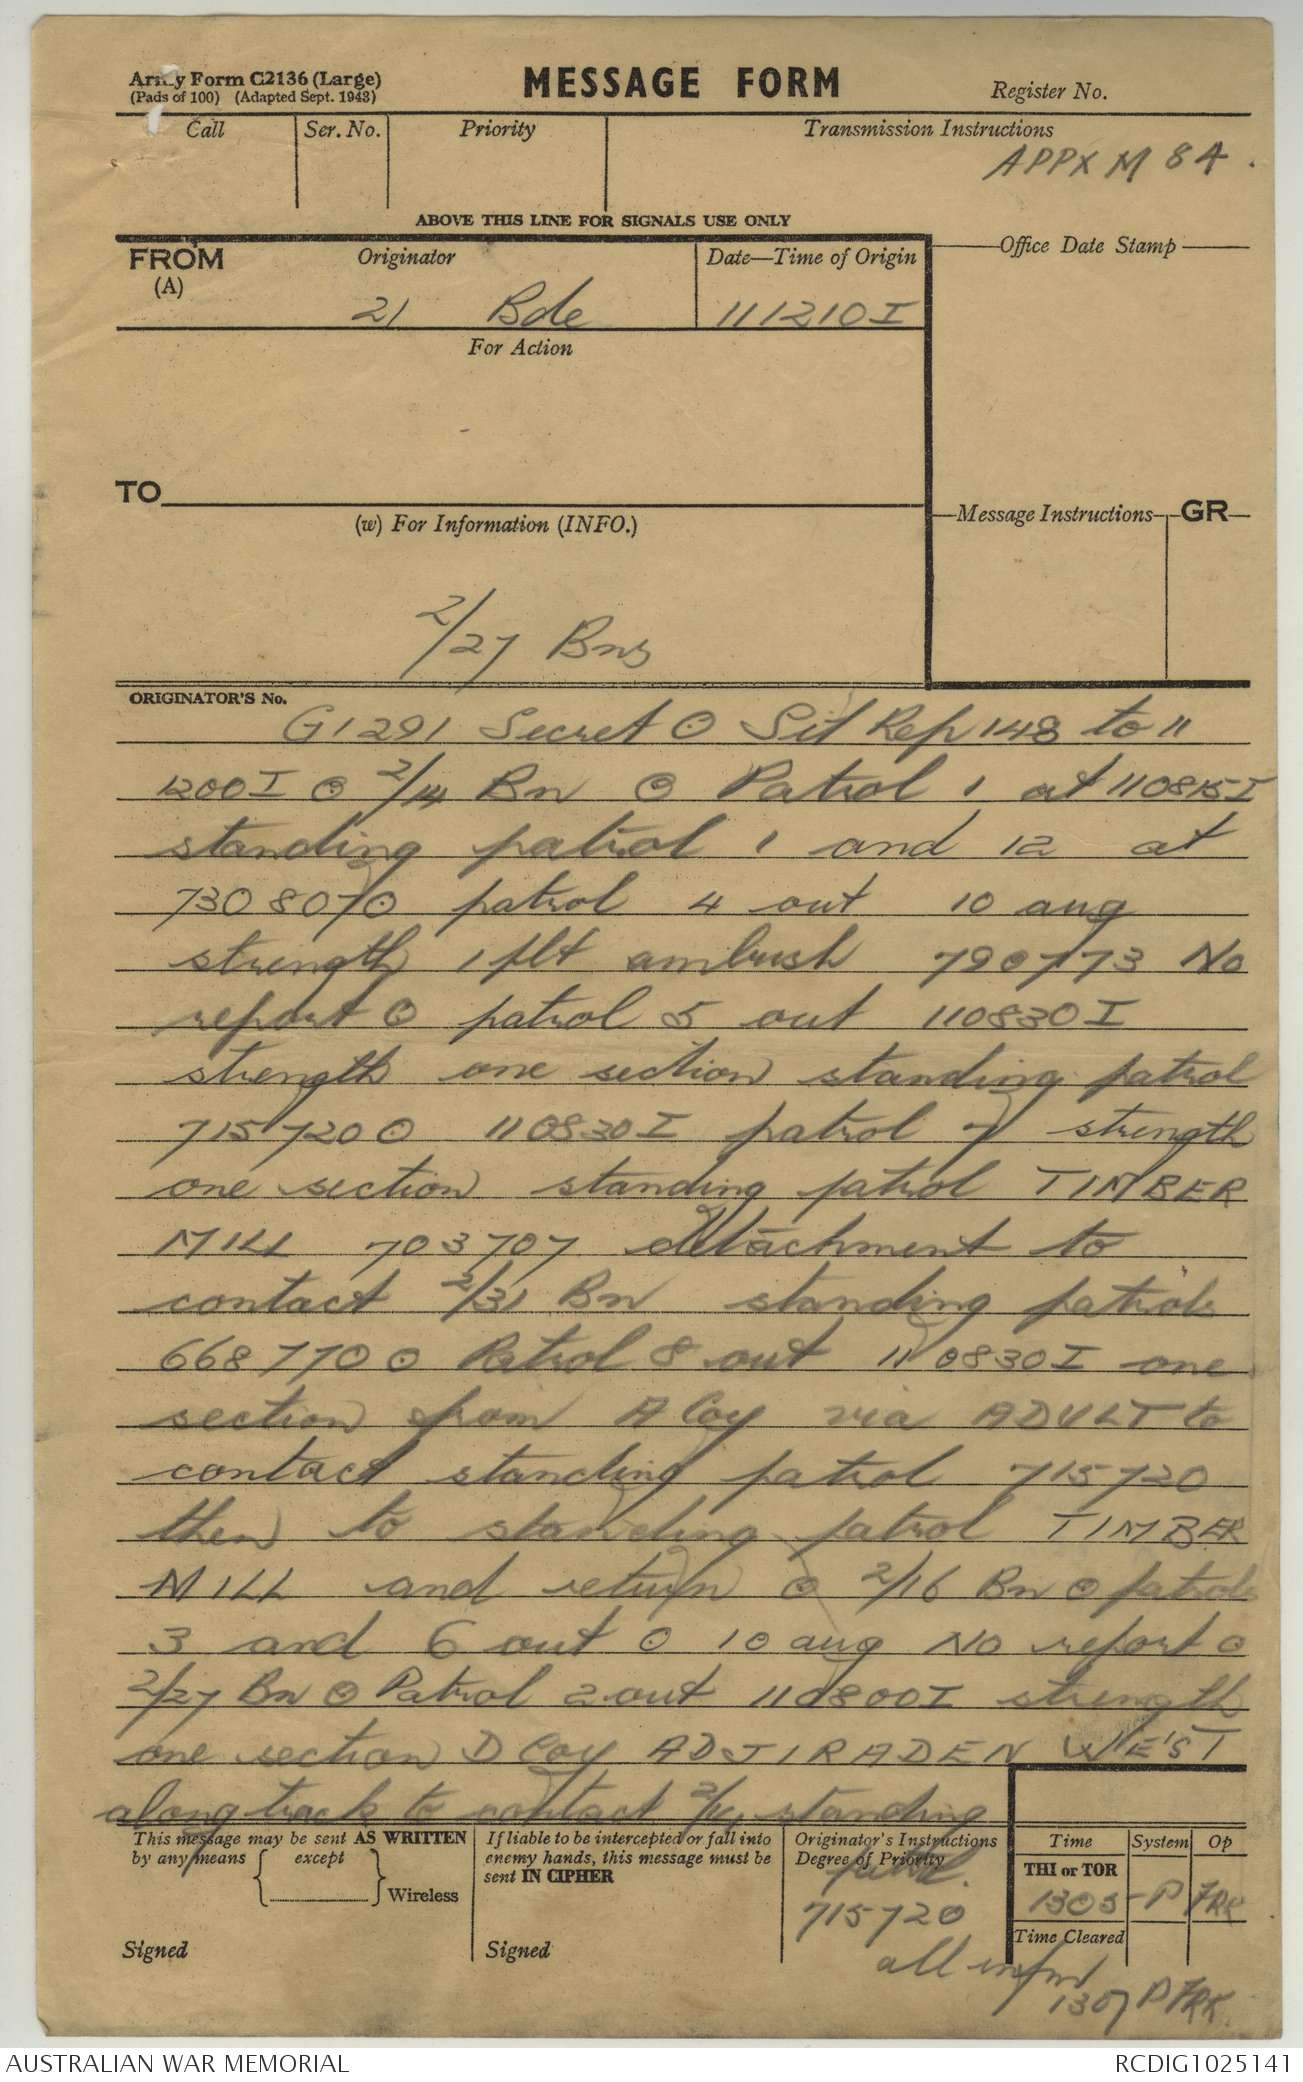 Army Form C2136 (Large)
(Pads of 100) (Adapted Sept. 1943)
MESSAGE FORM
Register No.
Call
Ser. No.
Priority
Transmission Instructions
APPX M 84.
ABOVE THIS LINE FOR SIGNALS USE ONLY
FROM
(A)
Originator
21 Bde
Date—Time of Origin
111210I
Office Date Stamp
For Action
TO
(w) For Information (INFO.)
Message Instructions
GR
2/27 Bns
ORIGINATOR'S No.
G1291 Secret ⊙ Sit Rep 148 to 11
1200I ⊙ 2/14 Bn ⊙ Patrol 1 at 110815I
standing patrol 1 and 12 at
730807⊙ patrol 4 out 10 aug
strength 1 plt ambush 790773 No
report ⊙ patrol 5 out 110830I
strength one section standing patrol
715720 ⊙ 110830I patrol 7 strength
one section standing patrol TIMBER
MILL 703707 detachment to
contact 2/31 Bn standing patrols
668770 ⊙ Patrol 8 out 110830I one
section from A Coy via ADULT to
contact standing patrol 715720
then to standing patrol TIMBER
MILL and return ⊙ 2/16 Bn ⊙ patrols
3 and 6 out ⊙ 10 aug No report ⊙
2/27 Bn ⊙ Patrol 2 out 110800I strength
one section D Coy ADJIRADEN WEST
along track to contact 2/14 standing
This message may be sent AS WRITTEN
by any means
except
Wireless
Signed
If liable to be intercepted or fall into
enemy hands, this message must be
sent IN CIPHER
Signed
Originator's Instructions
Degree of Priority
patrol.
715720
Time
System
Op
THI or TOR
1305 P FRK
Time Cleared
all infm
1307 P FRK
AUSTRALIAN WAR MEMORIAL
RCDIG1025141